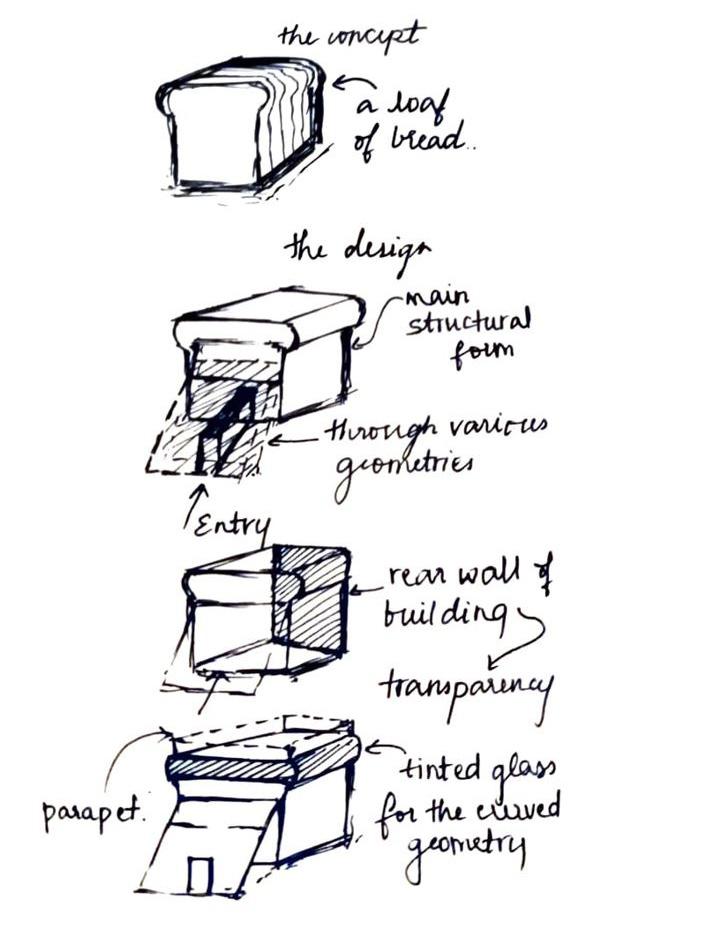 the concept
a loaf
of bread..
the design
main
structural
form
through various
geometries
Entry
rear wall of
building
transparency
parapet.
tinted glass
for the curved
geometry